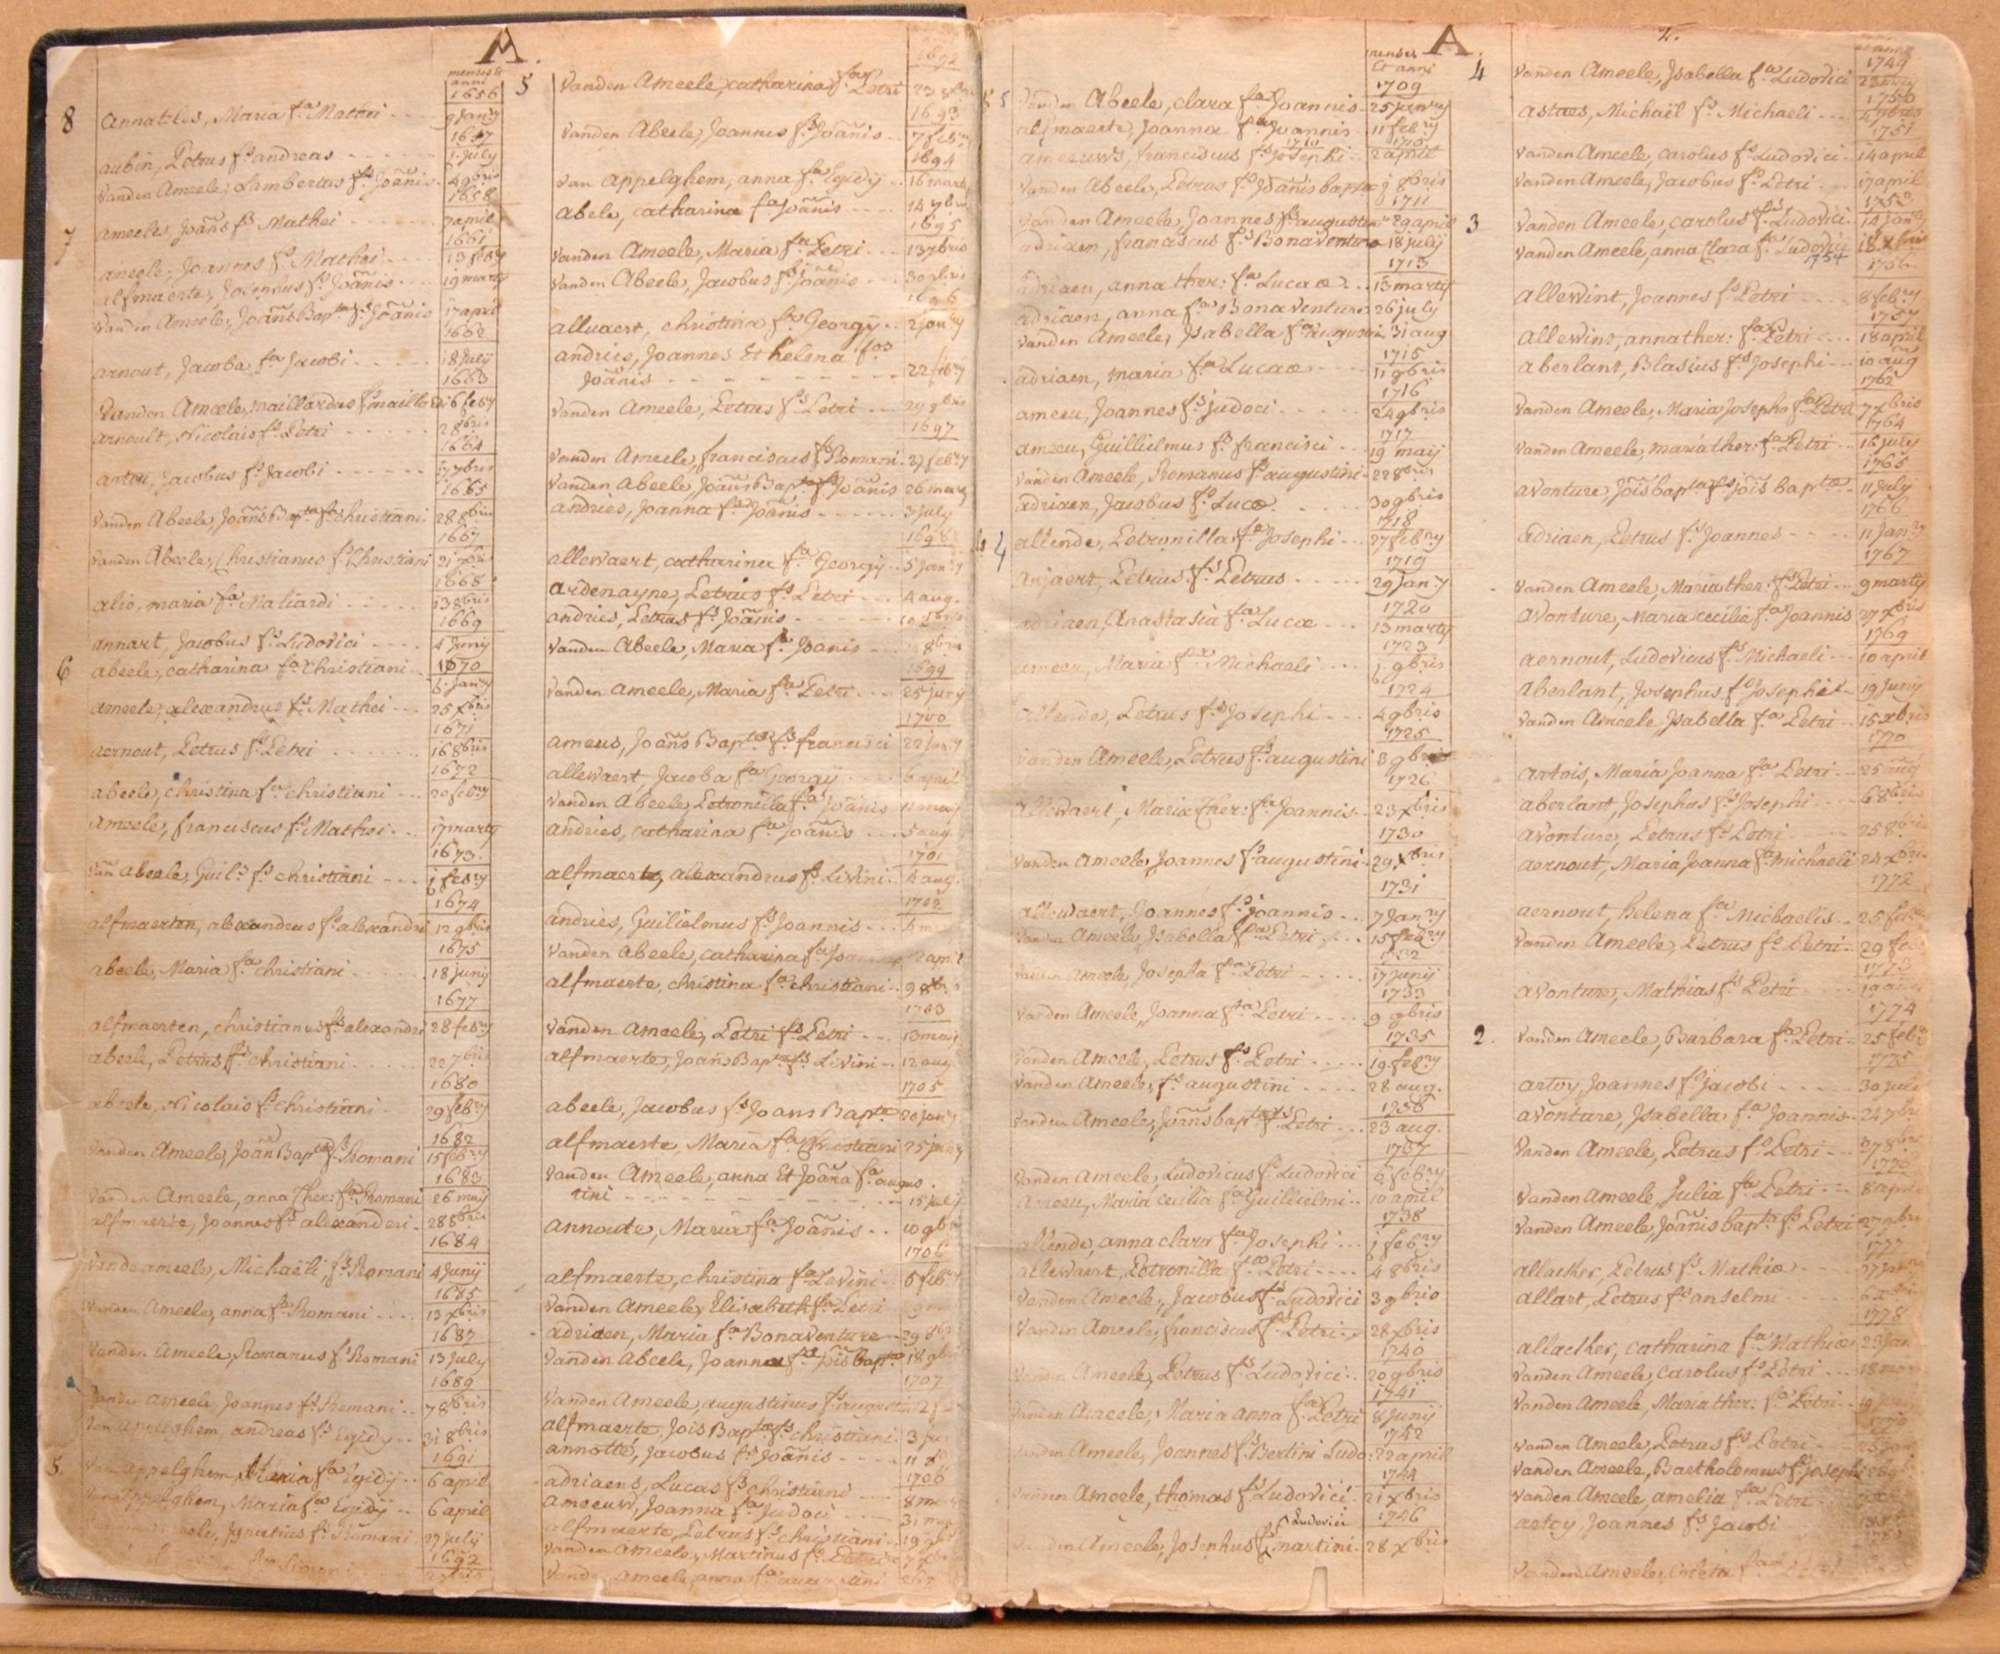 A.
menses et
anni
1656
8 annatzles, Maria fa Mathei 9 Janry
1657
aubin, Petrus fs andreas 1 July
Vanden Ameele, Lambertus fs Joãnis 4 9bris
1658
7 ameele, Joãns fs Mathei 7 april
1661
ameele, Joannes fs Mathei 13 febry
alfmaerte, Josephus fs Joãnis 19 marty
Vanden Ameele, Joãns Bapta fs Joãnis 17 april
1662
arnout, Jacoba fa Jacobi 18 July
1663
Vanden Ameele, maillardus fs maillardi 6 febry
arnoult, Nicolais fs Petri 28bris
1664
artou, Jacobus fs Jacobi 17 7bris
1665
Vanden Abeele, Joãns Bapta fs Christiani 28 8bris
1667
Vanden Abeele, Christianus fs Christiani 21 7bris
1668
alio, maria fa Maliardi 13 8bris
1669
annart, Jacobus fs Ludovici 4 Juny
6 abeele, catharina fa Christiani 1670
6 Janry
ameele, alexandrus fs Mathei 25 Xbris
1671
aernout, Petrus fs Petri 16 8bris
1672
abeele, christina fa christiani 20 febry
Ameele, franciscus fs Mathei 17 marty
1673
Van abeele, Guils fs christiani 1 febry
1674
alfmaerten, alexandrus fs alexandri 12 9bris
1675
abeele, Maria fa christiani 18 juny
1677
alfmaerten, christianus fs alexandri 28 febry
abeele, Petrus fs christiani 22 7bris
1680
abeele, Nicolais fs christiani 29 febry
1682
Vanden Ameele, Joãn Bapta fs Romani 15 febry
1683
Vanden Ameele, anna Ther: fa Romani 26 may
alfmaerte, Joannes fs alexanderi 28 8bris
1684
Vande ameele, Michaëli fs Romani 4 Junij
1685
Vanden Ameele, anna fa Romani 13 Xbris
1687
Vanden Ameele, Romanus fs Romani 13 July
1689
Vanden Ameele Joannes fs Romani 7 8bris
Van appelghem, andreas fs Egidy 31 8bris
1691
5 Van appelghem, Maria fa Egidij 6 april
Van appelghem, Maria fa Egidij 6 april
Ignatius fs Romani 27 julij
1692
1692
5 Vanden Ameele, catharina fa Petri 23 8bris
1693
Vanden Abeele, Joannes fs Joãnis 17 febry
1694
Van appelghem, anna fa Egidij 16 marty
abele, catharina fa Joãnis 14 7bris
1695
Vanden Ameele, Maria fa Petri 13 7bris
Vanden Abeele, Jacobus fs Joãnis 30 9bris
1696
alluaert, christina fa Georgij 2 janry
andries, Joannes Et helena fos
Joãnis 22 febry
Vanden Ameele, Petrus fs Petri 29 8bris
1697
Vanden Ameele, franciscus fs Romani 27 febry
Vanden Abeele, Joãns Bapta fs Joãnis 26 marty
andries, Joanna fa Joãnis 3 july
1698
allewaert, catharina fa Georgij 5 janry
ardenayne, Petrus fs Petri 4 aug.
andries, Petrus fs Joãnis
Vanden Abeele, Maria fa Joanis 8bris
1699
Vanden Ameele, Maria fa Petri 25 july
1700
ameus, Joãns Bapta fs francisci 22 janry
allewaert, Jacoba fa Georgij 6 april
Vanden Abeele, Petronilla fa Joãnis 11 may
andries, catharina fa Joãnis 5 aug
1701
alfmaerte, alexandrus fs Livini 4 aug.
1702
andries, Guilielmus fs Joannis
Vanden Abeele, catharina fa april
alfmaerte, christina fa christiani 9 8bris
1703
Vanden Ameele, Petri fs Petri 13 may
alfmaerte, Joãns Bapta fs Livini 12 aug.
1705
abeele, Jacobus fs Joans Bapta 20 janry
alfmaerte, Maria fa Christiani 25 janry
Vanden Ameele, anna Et Joãna fa augus-
tini 15 july
annoute, Maria fa Joãnis 10 9bris
1706
alfmaerte, christina fa Levini 6 febry
Vanden Ameele, Elisabeth fa Petri
adriaen, Maria fa Bonaventure 29 8bris
Vanden Abeele, Joanna fa Jõis bapta 18 9bris
1707
Vanden Ameele, augustinus fs augustini
alfmaerte, Jois Bapta fs christiani
annotte, Jacobus fs Joãnis
1708
adriaens, Lucas fs christiani
ameeuw, Joanna fa Judoci
alfmaerte, Petrus fs christiani
Vanden Ameele, Martinus fs Petri
Vanden Ameele, anna fa augustini
A.
menses
Et anni
1709
5 Vanden Abeele, clara fa Joannis 25 janry
alfmaerte, Joanna fa Joannis 11 febry
1710
ameeuws, franciscus fs Josephi 2 april
Vanden Abeele, Petrus fs Joãnis bapta 8bris
1711
Vanden Ameele, Joannes fs augustini 29 april
adriaen, franciscus fs Bonaventure 18 july
1713
adriaen, anna ther: fa Lucae 13 marty
adriaen, anna fa Bonaventure 26 july
Vanden Ameele, Isabella fa augustini 31 aug
1715
adriaen, maria fa Lucae 11 9bris
1716
ameeu, Joannes fs judoci 24 9bris
1717
ameeu, Guillielmus fs francisci 19 maij
Vanden Ameele, Romanus fs augustini 22 8bris
adriaen, Jacobus fs Lucæ 30 9bris
1718
4 allende, Petronilla fa Josephi 27 febry
1719
anjaert, Petrus fs Petrus 29 janry
1720
adriaen, Anastasia fa Lucæ 13 marty
1723
ameeu, Maria fa Michaeli 1 9bris
1724
allende, Petrus fs Josephi 4 9bris
1725
Vanden Ameele, Petrus fs augustini 8 9bris
1726
allewaert, Maria ther: fa Joannis 23 Xbris
1730
Vanden Ameele, Joannes fs augustini 29 Xbris
1731
allewaert, Joannes fs joannis 7 janry
Vanden Ameele, Isabella fa Petri 15 febry
1732
Vanden Ameele, Josepha fa Petri 17 junij
1733
Vanden Ameele, Joanna fa Petri 9 9bris
1735
Vanden Ameele, Petrus fs Petri 19 febry
Vanden Ameele, fs augustini 28 aug.
1736
Vanden Ameele, Joãns bapta fs Petri 23 aug.
1737
Vanden Ameele, Ludovicus fs Ludovici 6 febry
Ameeu, Maria Cecilia fa Guillielmi 10 april
1738
allende, anna clara fa Josephi 1 febry
allewaert, Petronilla fa Petri 4 8bris
Vanden Ameele, Jacobus fs Ludovici 3 9bris
Vanden Ameele, franciscus fs Petri 28 Xbris
1740
Vanden Ameele, Petrus fs Ludovici 20 9bris
1741
Vanden Ameele, Maria anna fa Petri 8 junij
1742
Vanden Ameele, Joannes fs Bertini Ludo: 22 april
1744
Vanden Ameele, thomas fs Ludovici 21 Xbris
1746
Ludovici
Vanden Ameele, Josephus fs martini 28 Xbris
2.
1749
4 Vanden Ameele, Isabella fa Ludovici
1750
astaes, Michaël fs Michaeli
1751
Vanden Ameele, carolus fs Ludovici 14 april
Vanden Ameele, Jacobus fs Petri 17 april
1753
3 Vanden Ameele, carolus fs Ludovici 14 janry
Vanden Ameele, anna Clara fa Ludovici 18 Xbris
1754
1756
allewint, Joannes fs Petri 8 febry
1757
allewint, anna ther: fa Petri 18 april
aberlant, Blasius fs Josephi 10 aug
1762
Vanden Ameele, Maria Josepha fa Petri 7 Xbris
1764
Vanden Ameele, maria ther: fa Petri 16 july
1765
avonture Jõis bapta fs jõis bapta 11 July
1766
adriaen, Petrus fs Joannes 11 Janry
1767
Vanden Ameele, Maria ther: fa Petri 9 marty
avonture, Maria cecilie fa Joannis 27 Xbris
1769
aernout, Ludovicus fs Michaeli 10 april
Aberlant, Josephus fs Josephi 19 junij
Vanden Ameele, Isabella fa Petri 15 Xbris
1770
artois, Maria Joanna fa Petri 25 aug
aberlant, Josephus fs Josephi 6 8bris
avonture, Petrus fs Petri 25 8bris
aernout, Maria Joanna fa Michaeli 24 Xbris
1772
aernout, helena fa Michaelis 25 feb
Vanden Ameele, Petrus fs Petri 29 fe
1773
avonture, Mathias fs Petri
1774
2. Vanden Ameele, Barbara fa Petri 25 feb
1775
artoy, Joannes fs jacobi 30 july
avonture, Isabella fa Joannis 24 7bris
Vanden Ameele, Petrus fs Petri 8bris
1776
Vanden Ameele, Julia fa Petri 8 april
Vanden Ameele, Joãnis bapta fs Petri 27 9bris
1777
allaeker, Petrus fs Mathiæ
allart, Petrus fs anselmi
1778
allaeker, catharina fa Mathiæ 23 Jan
Vanden Ameele, carolus fs Petri
Vanden Ameele, Maria ther: fa Petri
Vanden Ameele, Petrus fs Petri
Vanden Ameele, Bartholomeus fs Josephi
Vanden Ameele, amelia fa Petri
artoy, Joannes fs Jacobi
Vanden Ameele, Coleta fa